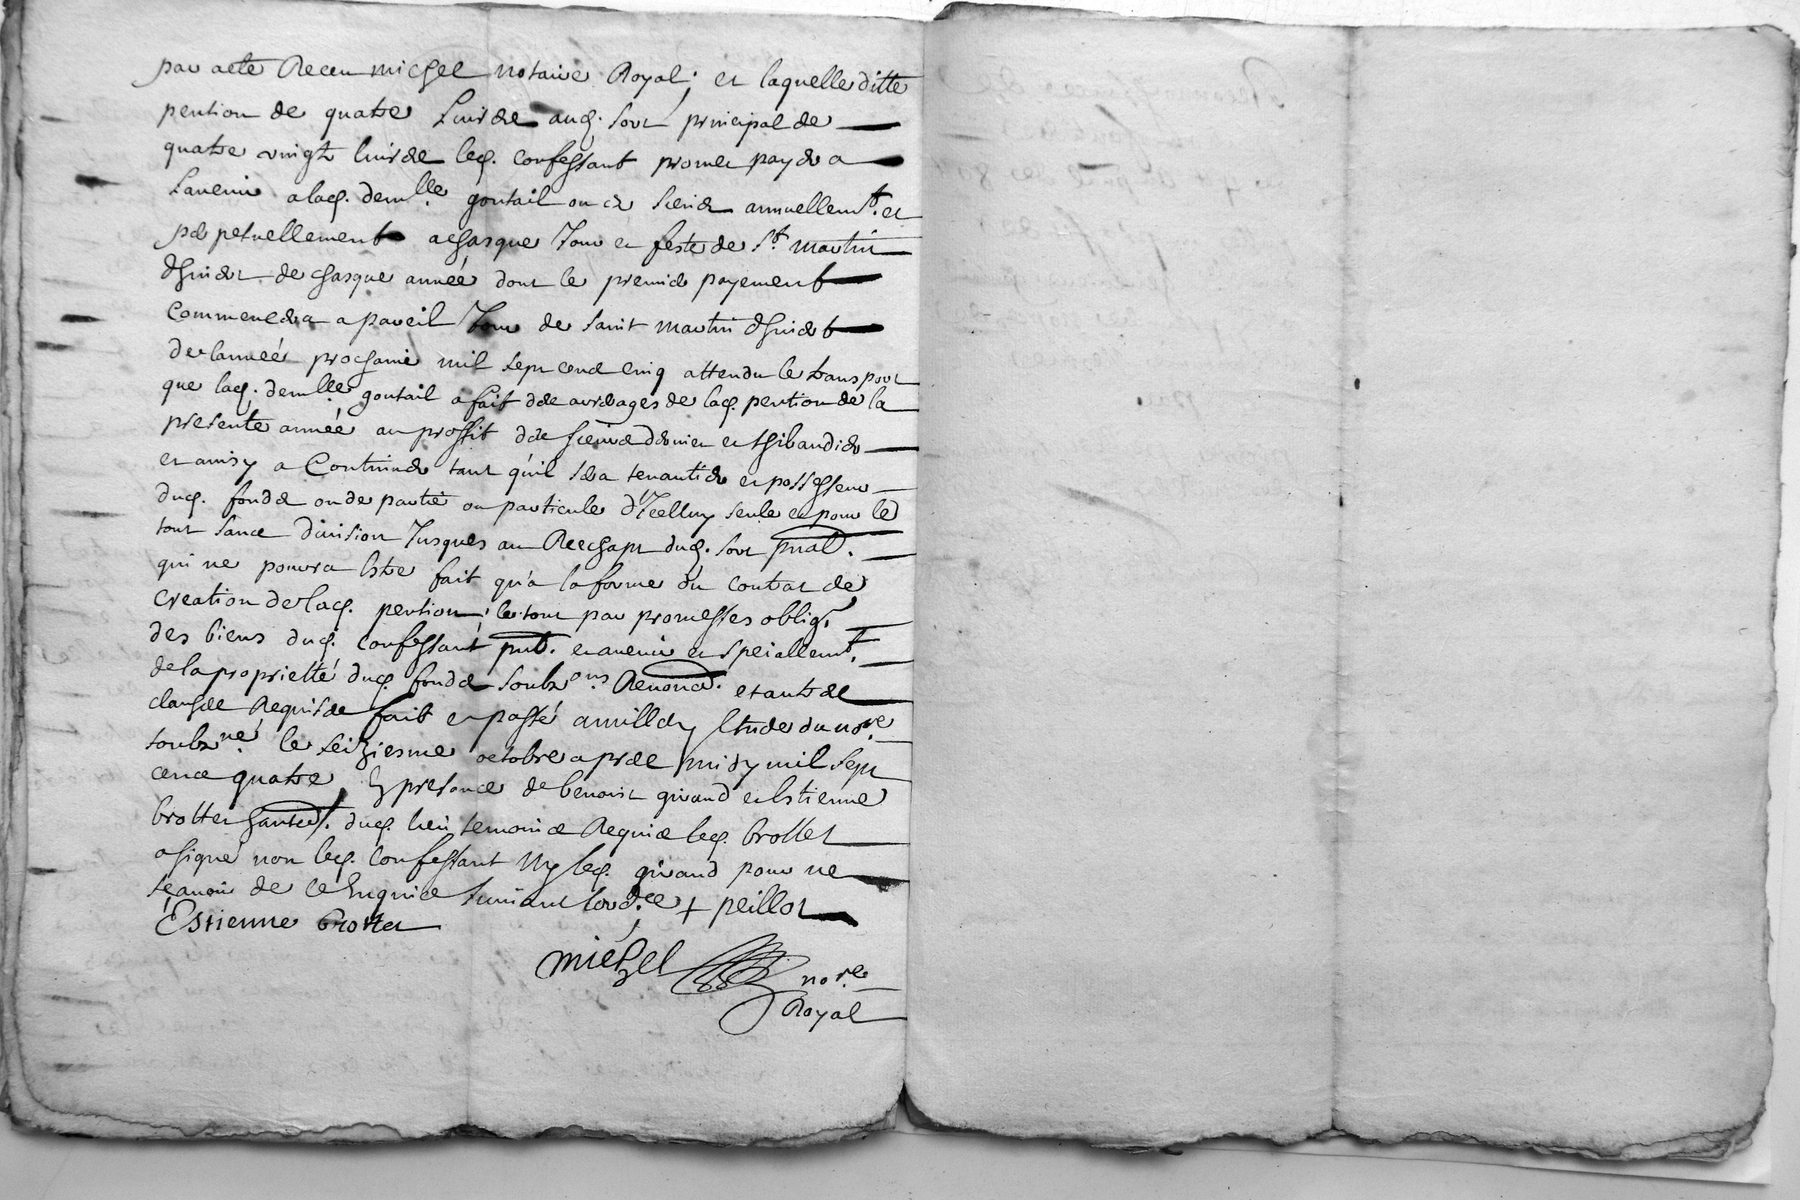 par acte Receu michel notaire Royal; et laquelle ditte
pention de quatre Livres aud. sort principal de
quatre vingt livres led. confessant promet payer a
Lavenir a lad. demlle. goutail ou es siens annuellemt. et
perpetuellement a chasque Jour et feste de st. martin
dhiver de chasque année dont le premier payement
commencera a pareil Jour de saint martin dhiver
de lanneé prochaine mil sept cent cinq attendu le transport
que lad. demlle. goutail a fait des arrerages de lad. pention de la
presente année au proffit des sieurs et thibaudier
et ainsy a Continuer tant qu'il sera tenantier et possesseur
dud. fonds ou de partie ou particule d'Icelluy seule et pour le
tout sans division Jusques au Reechapt dud. sort pnal.
qui ne pourra Estre fait qu'a la forme du contrat de
creation de lad. pention; le tout par promesses oblig.
des biens dud. confessant pnt. et avenir et speciallemt.
de la proprietté dud. fonds soubz ons. Renond. et autres
clauses Requises fait et passé a Etude du nore.
soubzné. le seiziesme octobre apres midy mil sept
cent quatre En presence de benoist girand et Estienne
brottet dud. lieu temoins Requis led. brottet
a signé non led. confessant Ny led. girand pour ne
sçavoir de ce Enquis suivant lordce + peillot
Estienne brottet
michel nore.
Royal